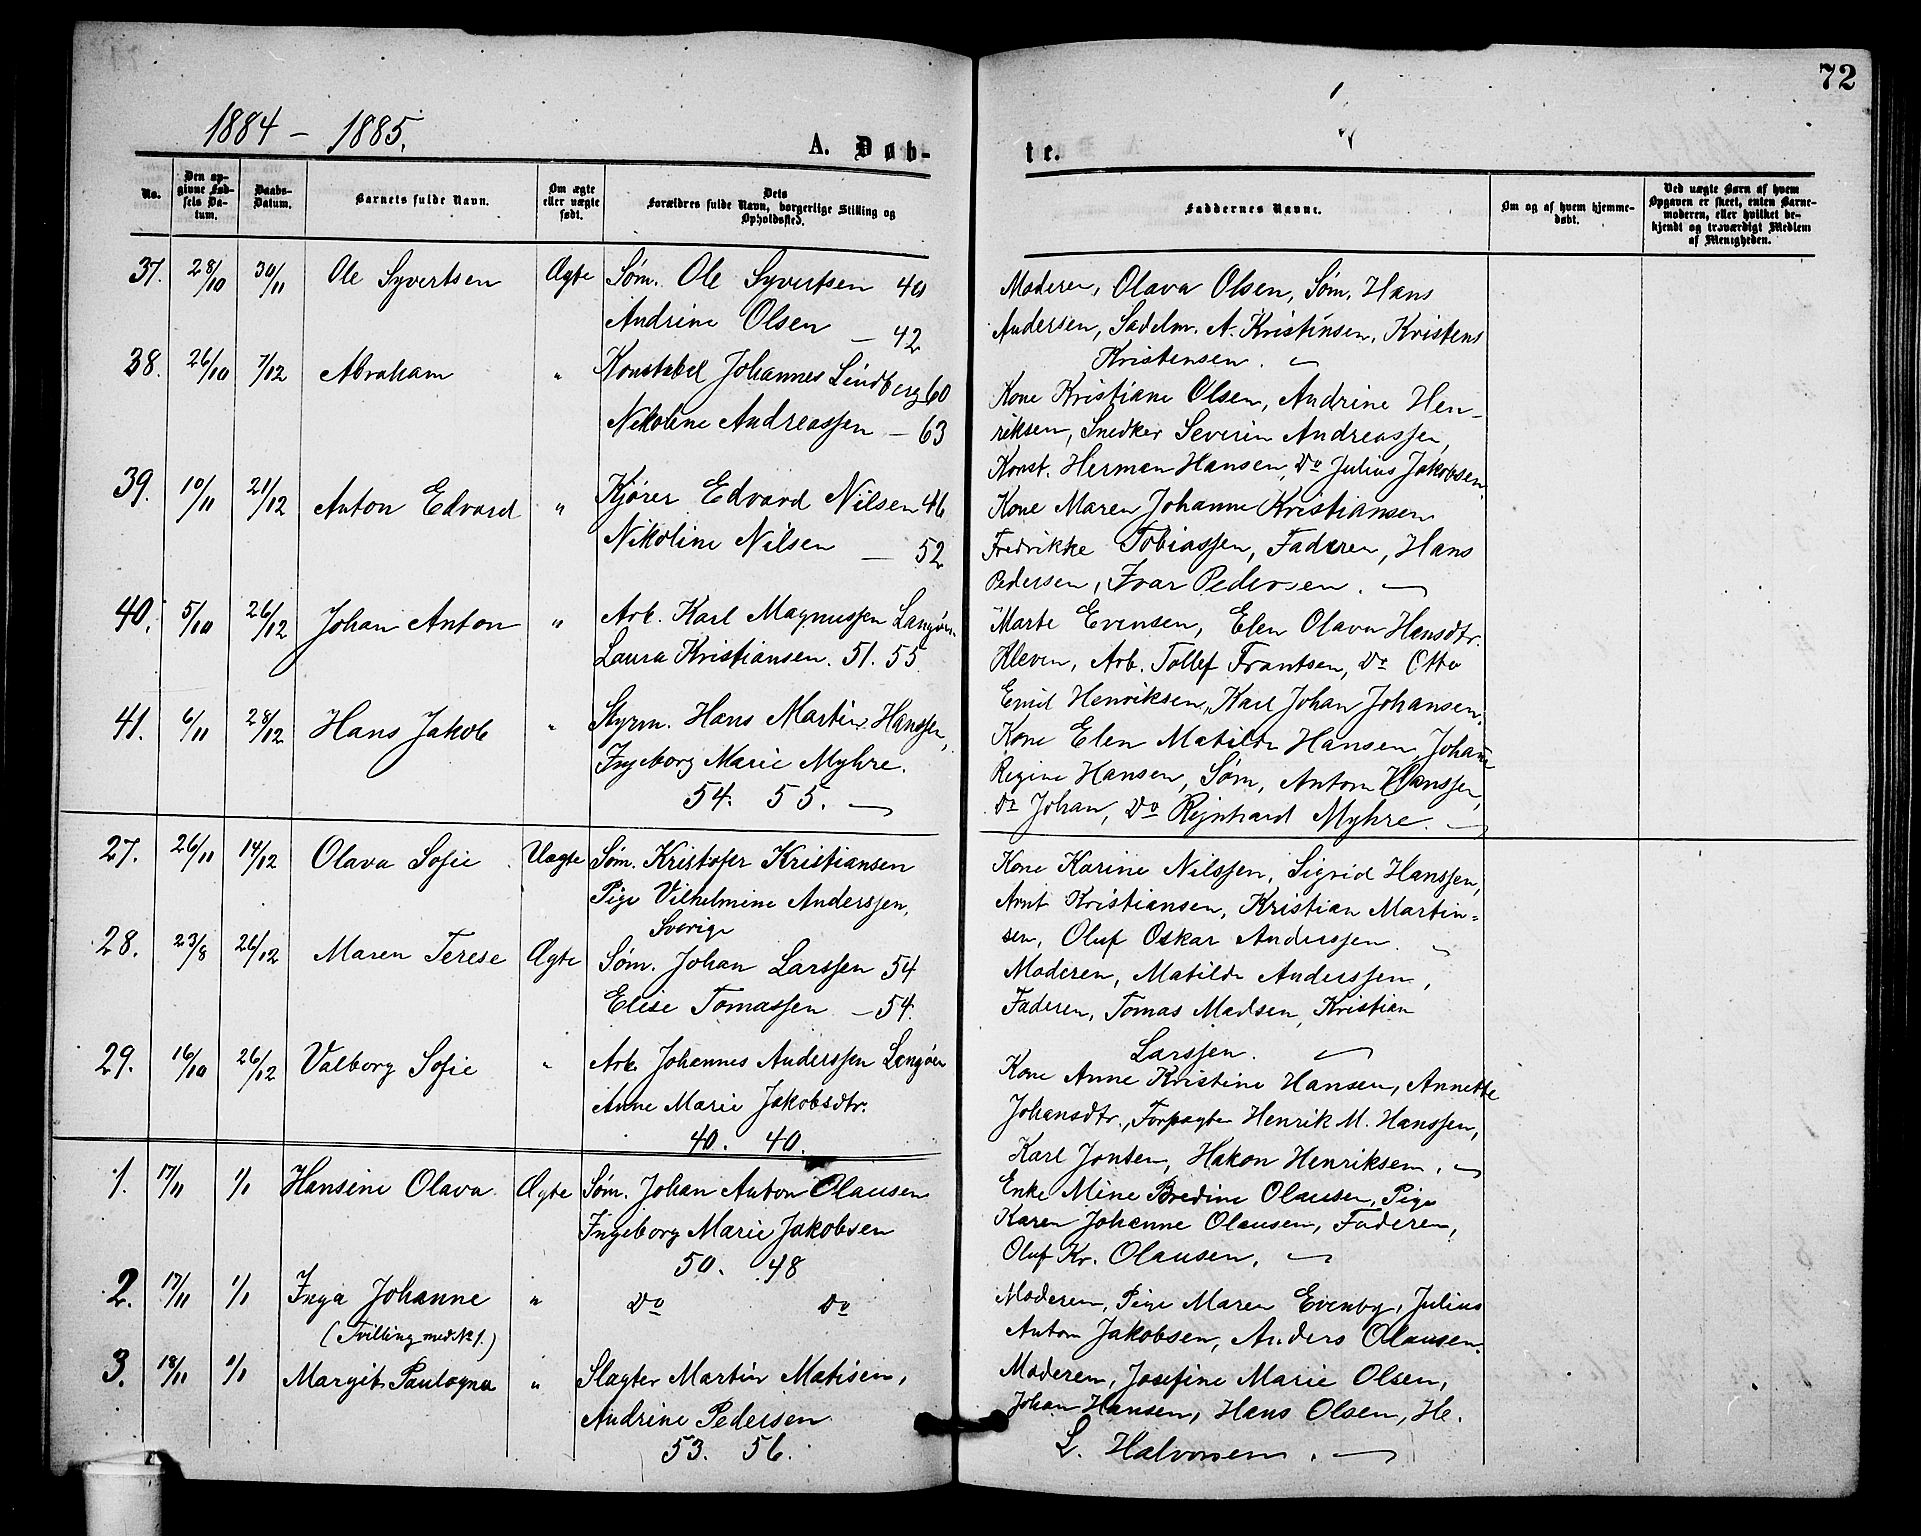 72
1884 - 1885.
A. Døb-
te.
No.
Den op-
givne Fød-
sels Da-
tum.
Daabs-
Datum.
Barnets fulde Navn.
Om ægte
eller uægte
født.
Dets
Forældres fulde Navn, borgerlige Stilling og
Opholdssted.
Faddernes Navne.
Om og af hvem hjemme-
døbt.
Ved uægte Børn af hvem
Opgaven er skeet, enten Barne-
moderen, eller hvilket be-
kjendt og troværdigt Medlem
af Menigheden.
37. 28/10 30/11 Ole Syvertsen Ægte Søm. Ole Syvertsen 40
Andrine Olsen — 42
Moderen, Olava Olsen, Søm. Hans
Andersen, Sadelm. A. Kristinsen, Kristens
Kristensen.
38. 26/10 7/12 Abraham " Konstabel Johannes Lindberg 60
Nikoline Andreassen — 63
Kone Kristiane Olsen, Andrine Hen-
riksen, Snedker Severin Andreassen,
Konst. Herman Hansen, Do Julius Jakobsen.
39. 10/11 21/12 Anton Edvard " Kjører Edvard Nilsen 46
Nikoline Nilsen — 52
Kone Maren Johanne Kristiansen
Fredrikke Tobiassen, Faderen, Hans
Pedersen, Ivar Pedersen.
40. 5/10 26/12 Johan Anton " Arb. Karl Magnussen Langøen
Laura Kristiansen. 51. 55
Marte Evensen, Elen Olava Hansdtr.
Kleven, Arb. Tollef Frantsen, Do Otto
Emil Henriksen, Karl Johan Johansen.
41. 6/11 28/12 Hans Jakob " Styrm. Hans Martin Hanssen,
Ingeborg Marie Myhre.
54. 55.
Kone Elen Matilde Hansen, Johanne
Regine Hansen, Søm, Anton Hanssen,
Do Johan, Do Rejnhard Myhre.
27. 26/11 14/12 Olava Sofie Uægte Søm. Kristofer Kristiansen
Pige Vilhelmine Anderssen,
Sverige
Kone Karine Nilssen, Sigrid Hanssen,
Arnt Kristiansen, Kristian Martin-
sen, Oluf Oskar Anderssen.
28. 23/8 26/12 Maren Terese Ægte Søm. Johan Larssen 54
Elise Tomassen — 54.
Moderen, Matilde Anderssen,
Faderen, Tomas Madsen, Kristian
Larssen.
29. 16/10 26/12 Valborg Sofie " Arb. Johannes Anderssen Langøen
Anne Marie Jakobsdtr.
40. 40.
Kone Anne Kristine Hansen, Annette
Johansdtr., Forpagter Henrik M. Hanssen,
Karl Jonsen, Hakon Henriksen.
1. 17/11 1/1 Hansine Olava Ægte Søm. Johan Anton Olausen
Ingeborg Marie Jakobsen
50. 48
Enke Mine Bredine Olausen, Pige
Karen Johanne Olausen, Faderen,
Oluf Kr. Olausen.
2. 17/11 1/1 Inga Johanne " Do Do
(Tvilling med No 1.)
Moderen, Pige Maren Evenby, Julius
Anton Jakobsen, Anders Olausen.
3. 18/11 1/1 Margit Paulogna " Slagter Martin Matisen,
Andrine Pedersen
53. 56.
Moderen, Josefine Marie Olsen,
Johan Hansen, Hans Olsen, H.
L. Halvorsen.